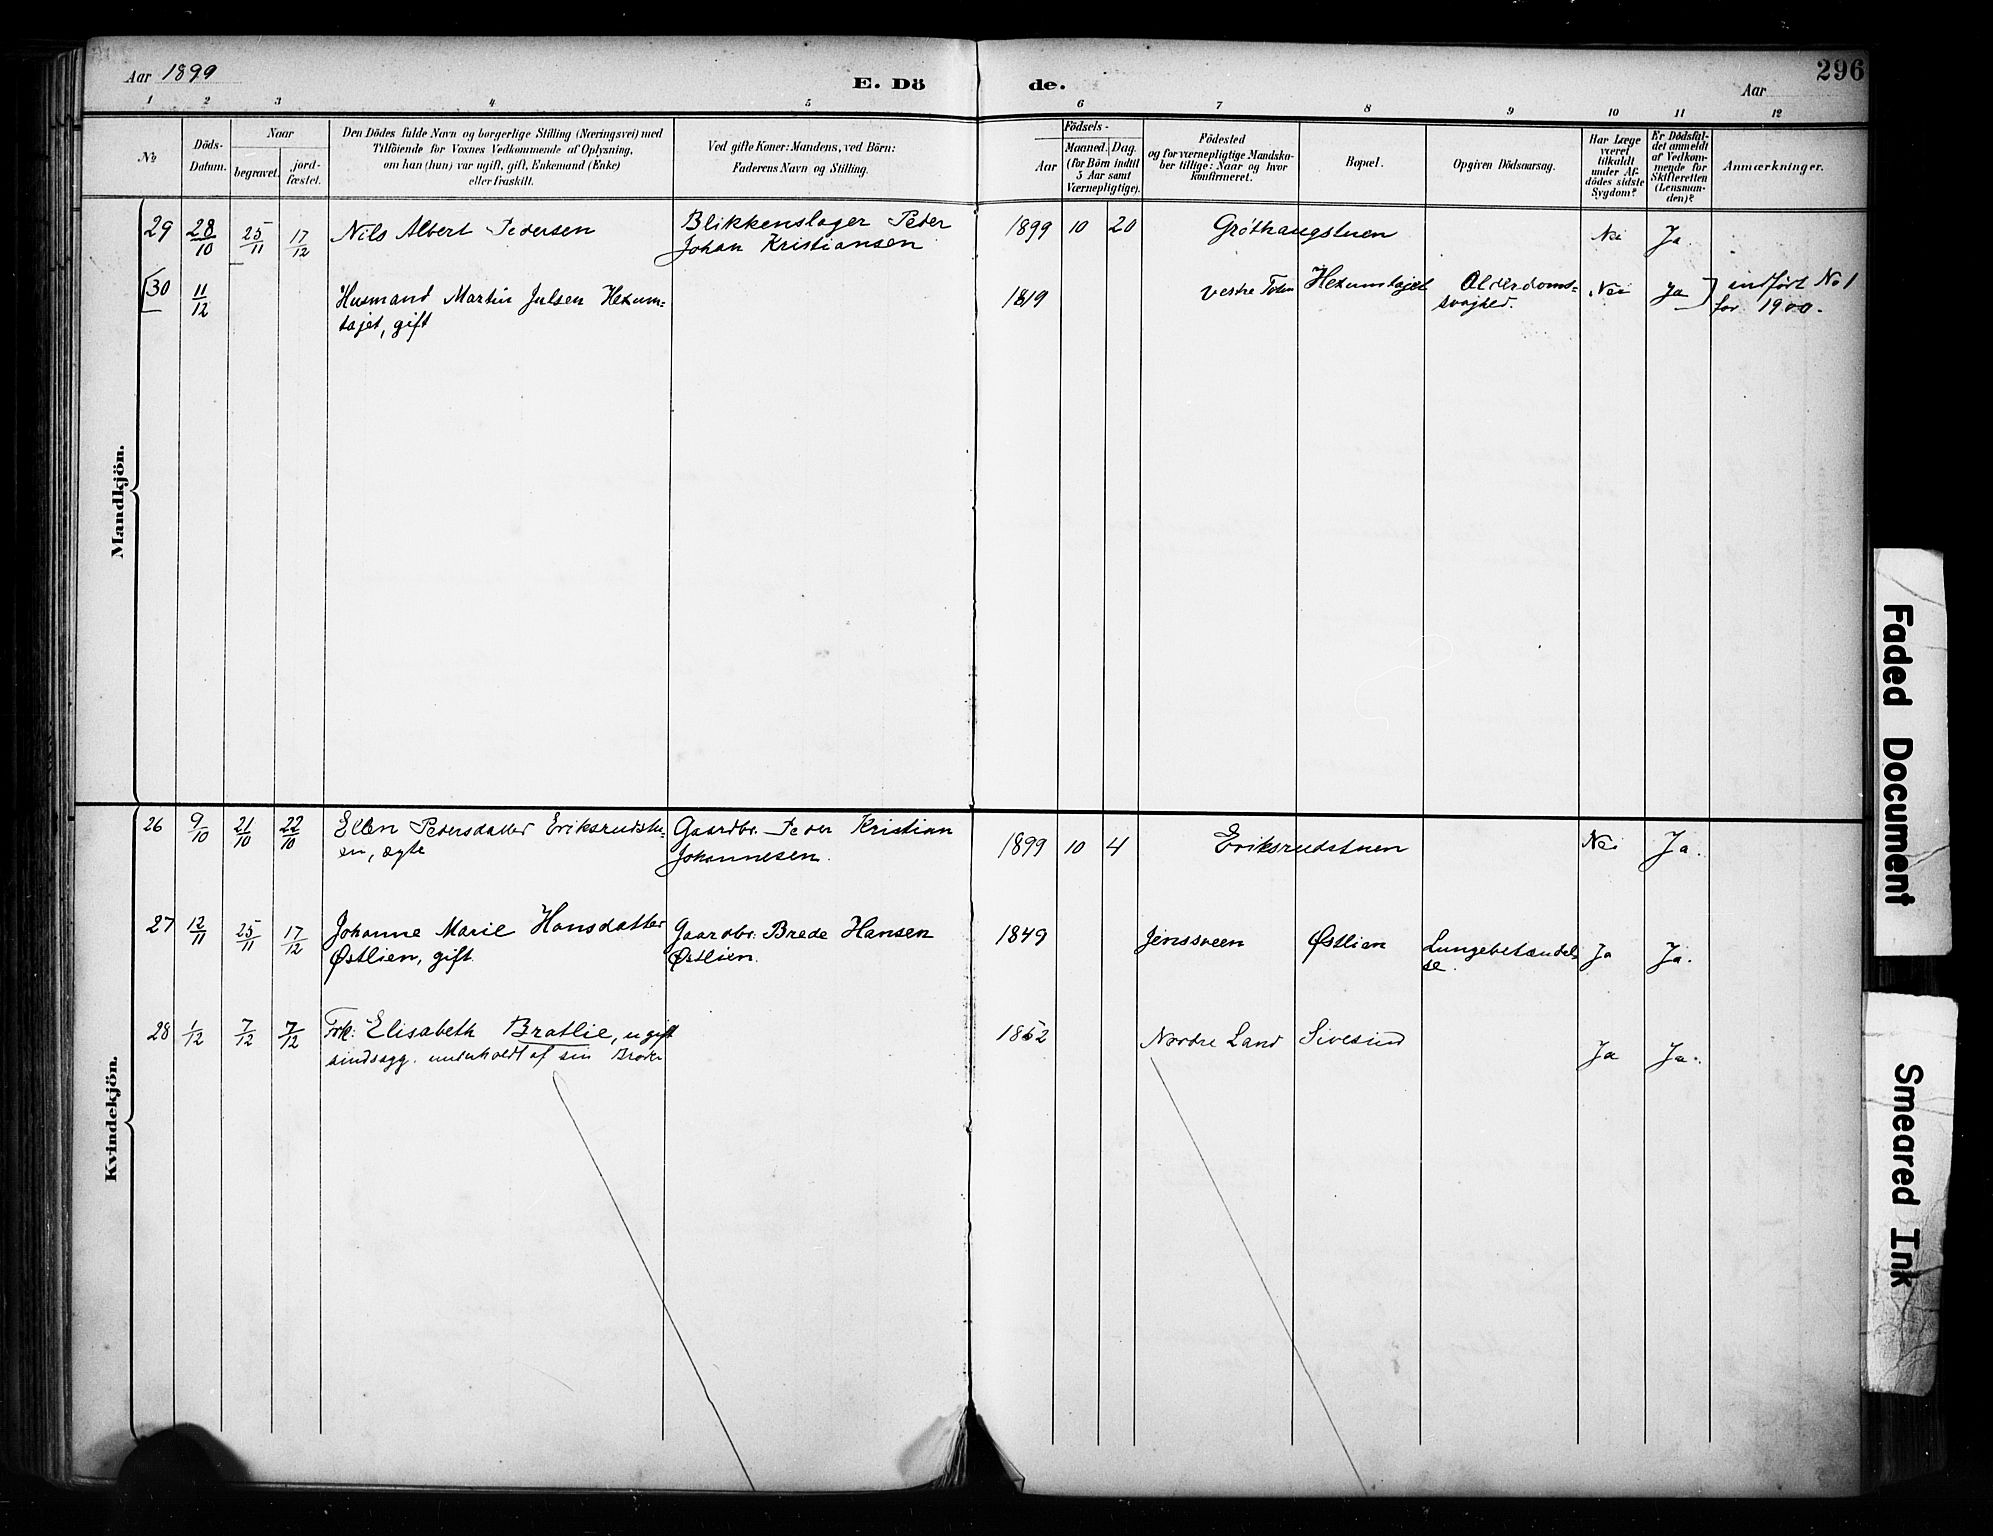 Aar 1899
E. Döde.
Aar
296
1 2 3 4 5 6 7 8 9 10 11 12
No
Döds-
Datum.
Naar
begravet.
jord-
fæstet.
Den Dödes fulde Navn og borgerlige Stilling (Næringsvei) med
Tilföiende for Voxnes Vedkommende af Oplysning,
om han (hun) var ugift, gift, Enkemand (Enke)
eller fraskilt.
Ved gifte Koner: Mandens, ved Börn:
Faderens Navn og Stilling.
Födsels-
Aar
Maaned. Dag.
(for Börn indtil
5 Aar samt
Værnepligtige).
Födested
og for værnepligtige Mandska-
ber tillige: Naar og hvor
konfirmeret.
Bopæl.
Opgiven Dödsaarsag.
Har Læge
været
tilkaldt
under Af-
dödes sidste
Sygdom?
Er Dödsfal-
det anmeldt
af Vedkom-
mende for
Skifteretten
(Lensman-
den)?
Anmærkninger.
Mandkjön.
29 28/10 25/11 17/12 Nils Albert Pedersen
Blikkenslager Peder
Johan Kristiansen
1899 10 20 Gröthaugstuen Nei Ja
30 11/12 Husmand Martin Julsen Hexum-
tajet, gift
1819 Vestre Toten Hexumtajet Alderdoms-
svaghed.
Nei Ja indført No 1
for 1900.
Kvindekjön.
26 9/10 21/10 22/10 Ellen Pedersdatter Eriksrudstu-
en, ægte
Gaardbr. Peder Kristian
Johannesen.
1899 10 4 Eriksrudstuen Nei Ja.
27 12/11 25/11 17/12 Johanne Marie Hansdatter
Østlien, gift.
Gaardbr. Brede Hansen
Østlien.
1849 Jenssveen Østlien Lungebetændel-
se.
Ja Ja.
28 1/12 7/12 7/12 Frk. Elisabeth Bratlie, ugift
sindssyg. underholdt af sin Broder
1852 Nordre Land Sivesind
Ja Ja.
Faded Document
Smeared Ink